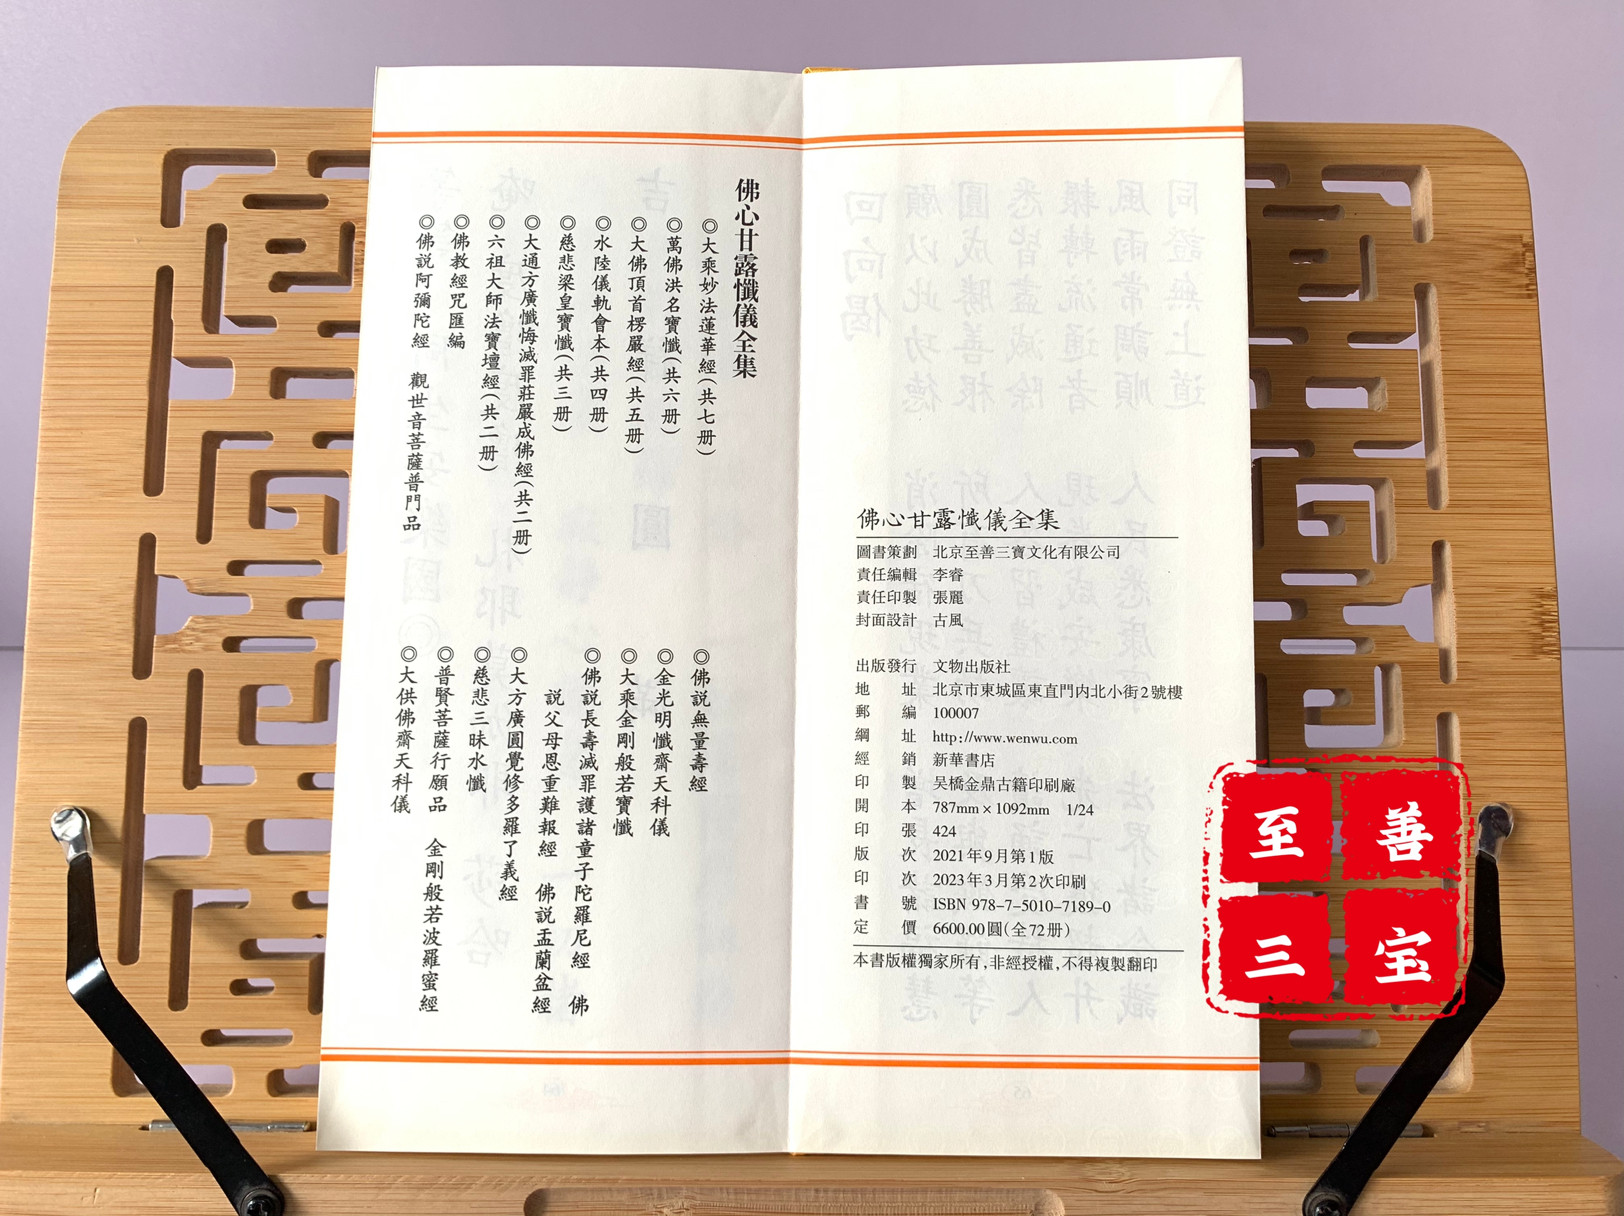 佛心甘露懺儀全集
◎大乘妙法蓮華經(共七册)
◎萬佛洪名寶懺(共六册)
◎大佛頂首楞嚴經(共五册)
◎水陸儀軌會本(共四册)
◎慈悲梁皇寶懺(共三册)
◎大通方廣懺悔滅罪莊嚴成佛經(共二册)
◎六祖大師法寶壇經(共二册)
◎佛教經咒匯編
◎佛説阿彌陀經 觀世音菩薩普門品
◎佛説無量壽經
◎金光明懺齋天科儀
◎大乘金剛般若寶懺
◎佛説長壽滅罪護諸童子陀羅尼經 佛
説父母恩重難報經 佛説盂蘭盆經
◎大方廣圓覺修多羅了義經
◎慈悲三昧水懺
◎普賢菩薩行願品 金剛般若波羅蜜經
◎大供佛齋天科儀
佛心甘露懺儀全集
圖書策劃 北京至善三寶文化有限公司
責任編輯 李睿
責任印製 張麗
封面設計 古風
出版發行 文物出版社
地 址 北京市東城區東直門内北小街2號樓
郵 編 100007
網 址 http://www.wenwu.com
經 銷 新華書店
印 製 吴橋金鼎古籍印刷廠
開 本 787mm×1092mm 1/24
印 張 424
版 次 2021年9月第1版
印 次 2023年3月第2次印刷
書 號 ISBN 978-7-5010-7189-0
定 價 6600.00圓(全72册)
本書版權獨家所有,非經授權,不得複製翻印
至善
三宝